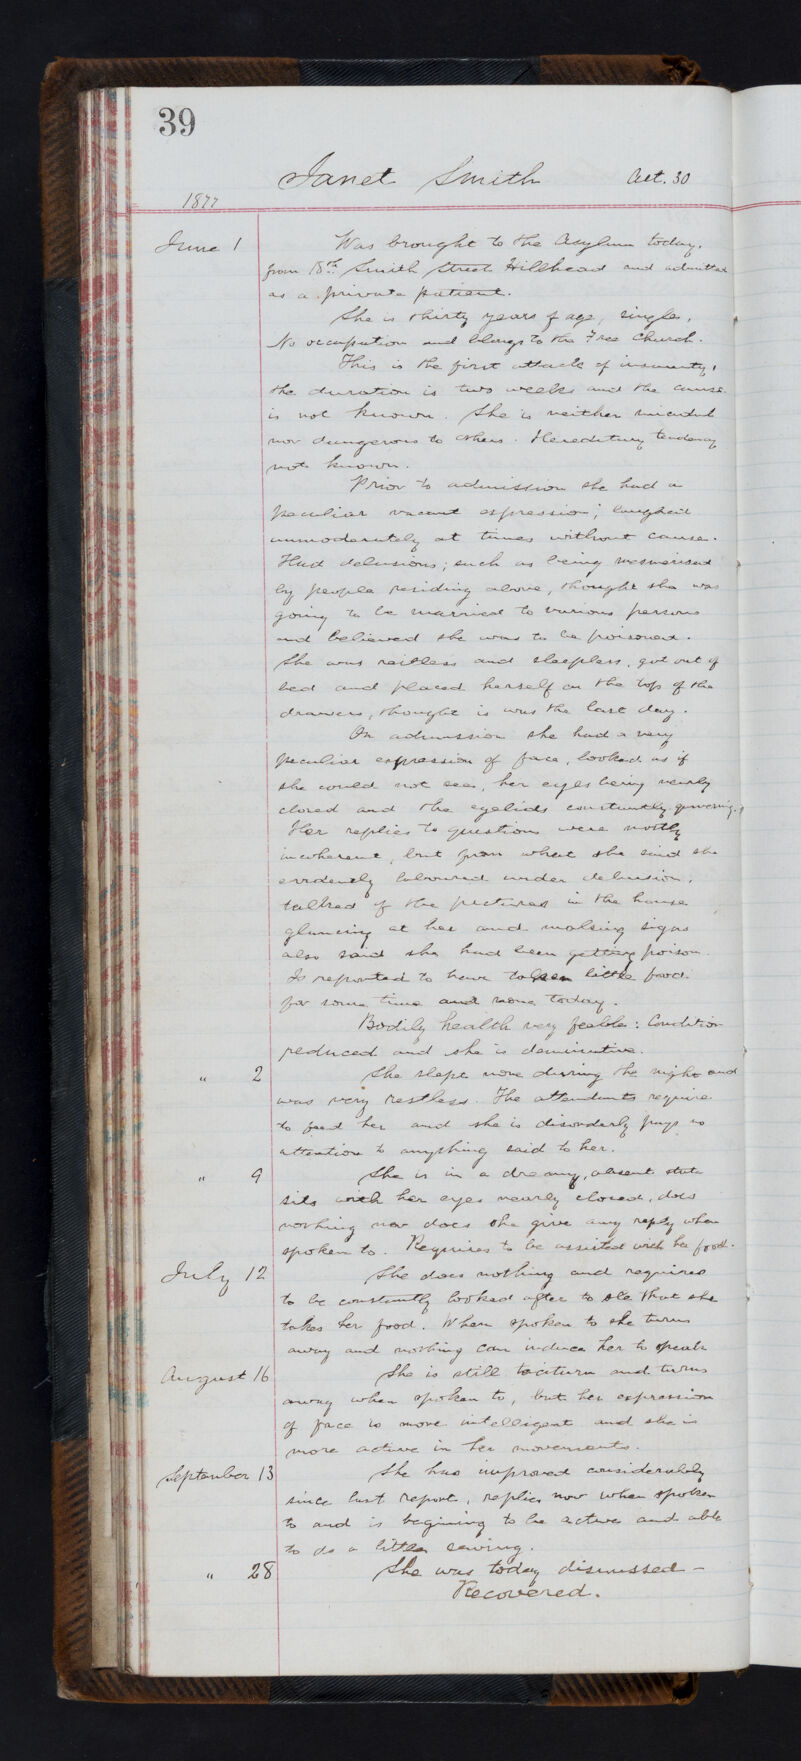 39
Janet Smith Aet. 30
1877
June 1 Was brought to the Asylum today.
from Smith Street Hillhead and admitted
as a private patient.
She is thirty years of age, single,
No occupation and belongs to the Free Church.
This is the first attack of insanity,
the duration is two weeks and the cause
is not known. She is neither suicidal
nor dangerous to others. Hereditary tendency
not known.
Prior to admission she had a
peculiar vacant expression; laughed
immoderately at times without cause.
Had delusions; such as being mesmerised
by people residing above, thought she was
going to be married to various persons
and believed she was to be poisoned.
She was restless and sleepless, got out of
bed and placed herself on the top of the
drawers, thought is was the last day.
On admission she had a very
peculiar expression of face, looked as if
she could not see, her eyes being nearly
closed and the eyelids constantly quivering.
Her replies to questions were mostly
incoherent, but from what she said she
evidently laboured under delusion,
talked of the pictures in the house
glancing at her and making signs
also said she had been getting poison.
Is reported to have taken little food
for some time and none today.
Bodily health very feeble: Condition
reduced and she is deminutive.
" 2 She slept none during the night and
was very restless. The attendants require
to feed her and she is disorderly pays no
attention to anything said to her.
" 9 She is in a dreamy, absent state
sits with her eyes nearly closed, does
nothing nor does she give any reply when
spoken to. Requires to be assisted with her food.
July 12 She does nothing and requires
to be constantly looked after to see that she
takes her food. When spoken to she turns
away and nothing can induce her to speak
August 16 She is still taciturn and turns
away when spoken to, but her expression
of face is more intelligent and she is
more active in her movements.
September 13 She has improved considerably
since last report, replies now when spoken
to and is begining to be active and able
to do a little sewing.
" 28 She was today dismissed –
Recovered.